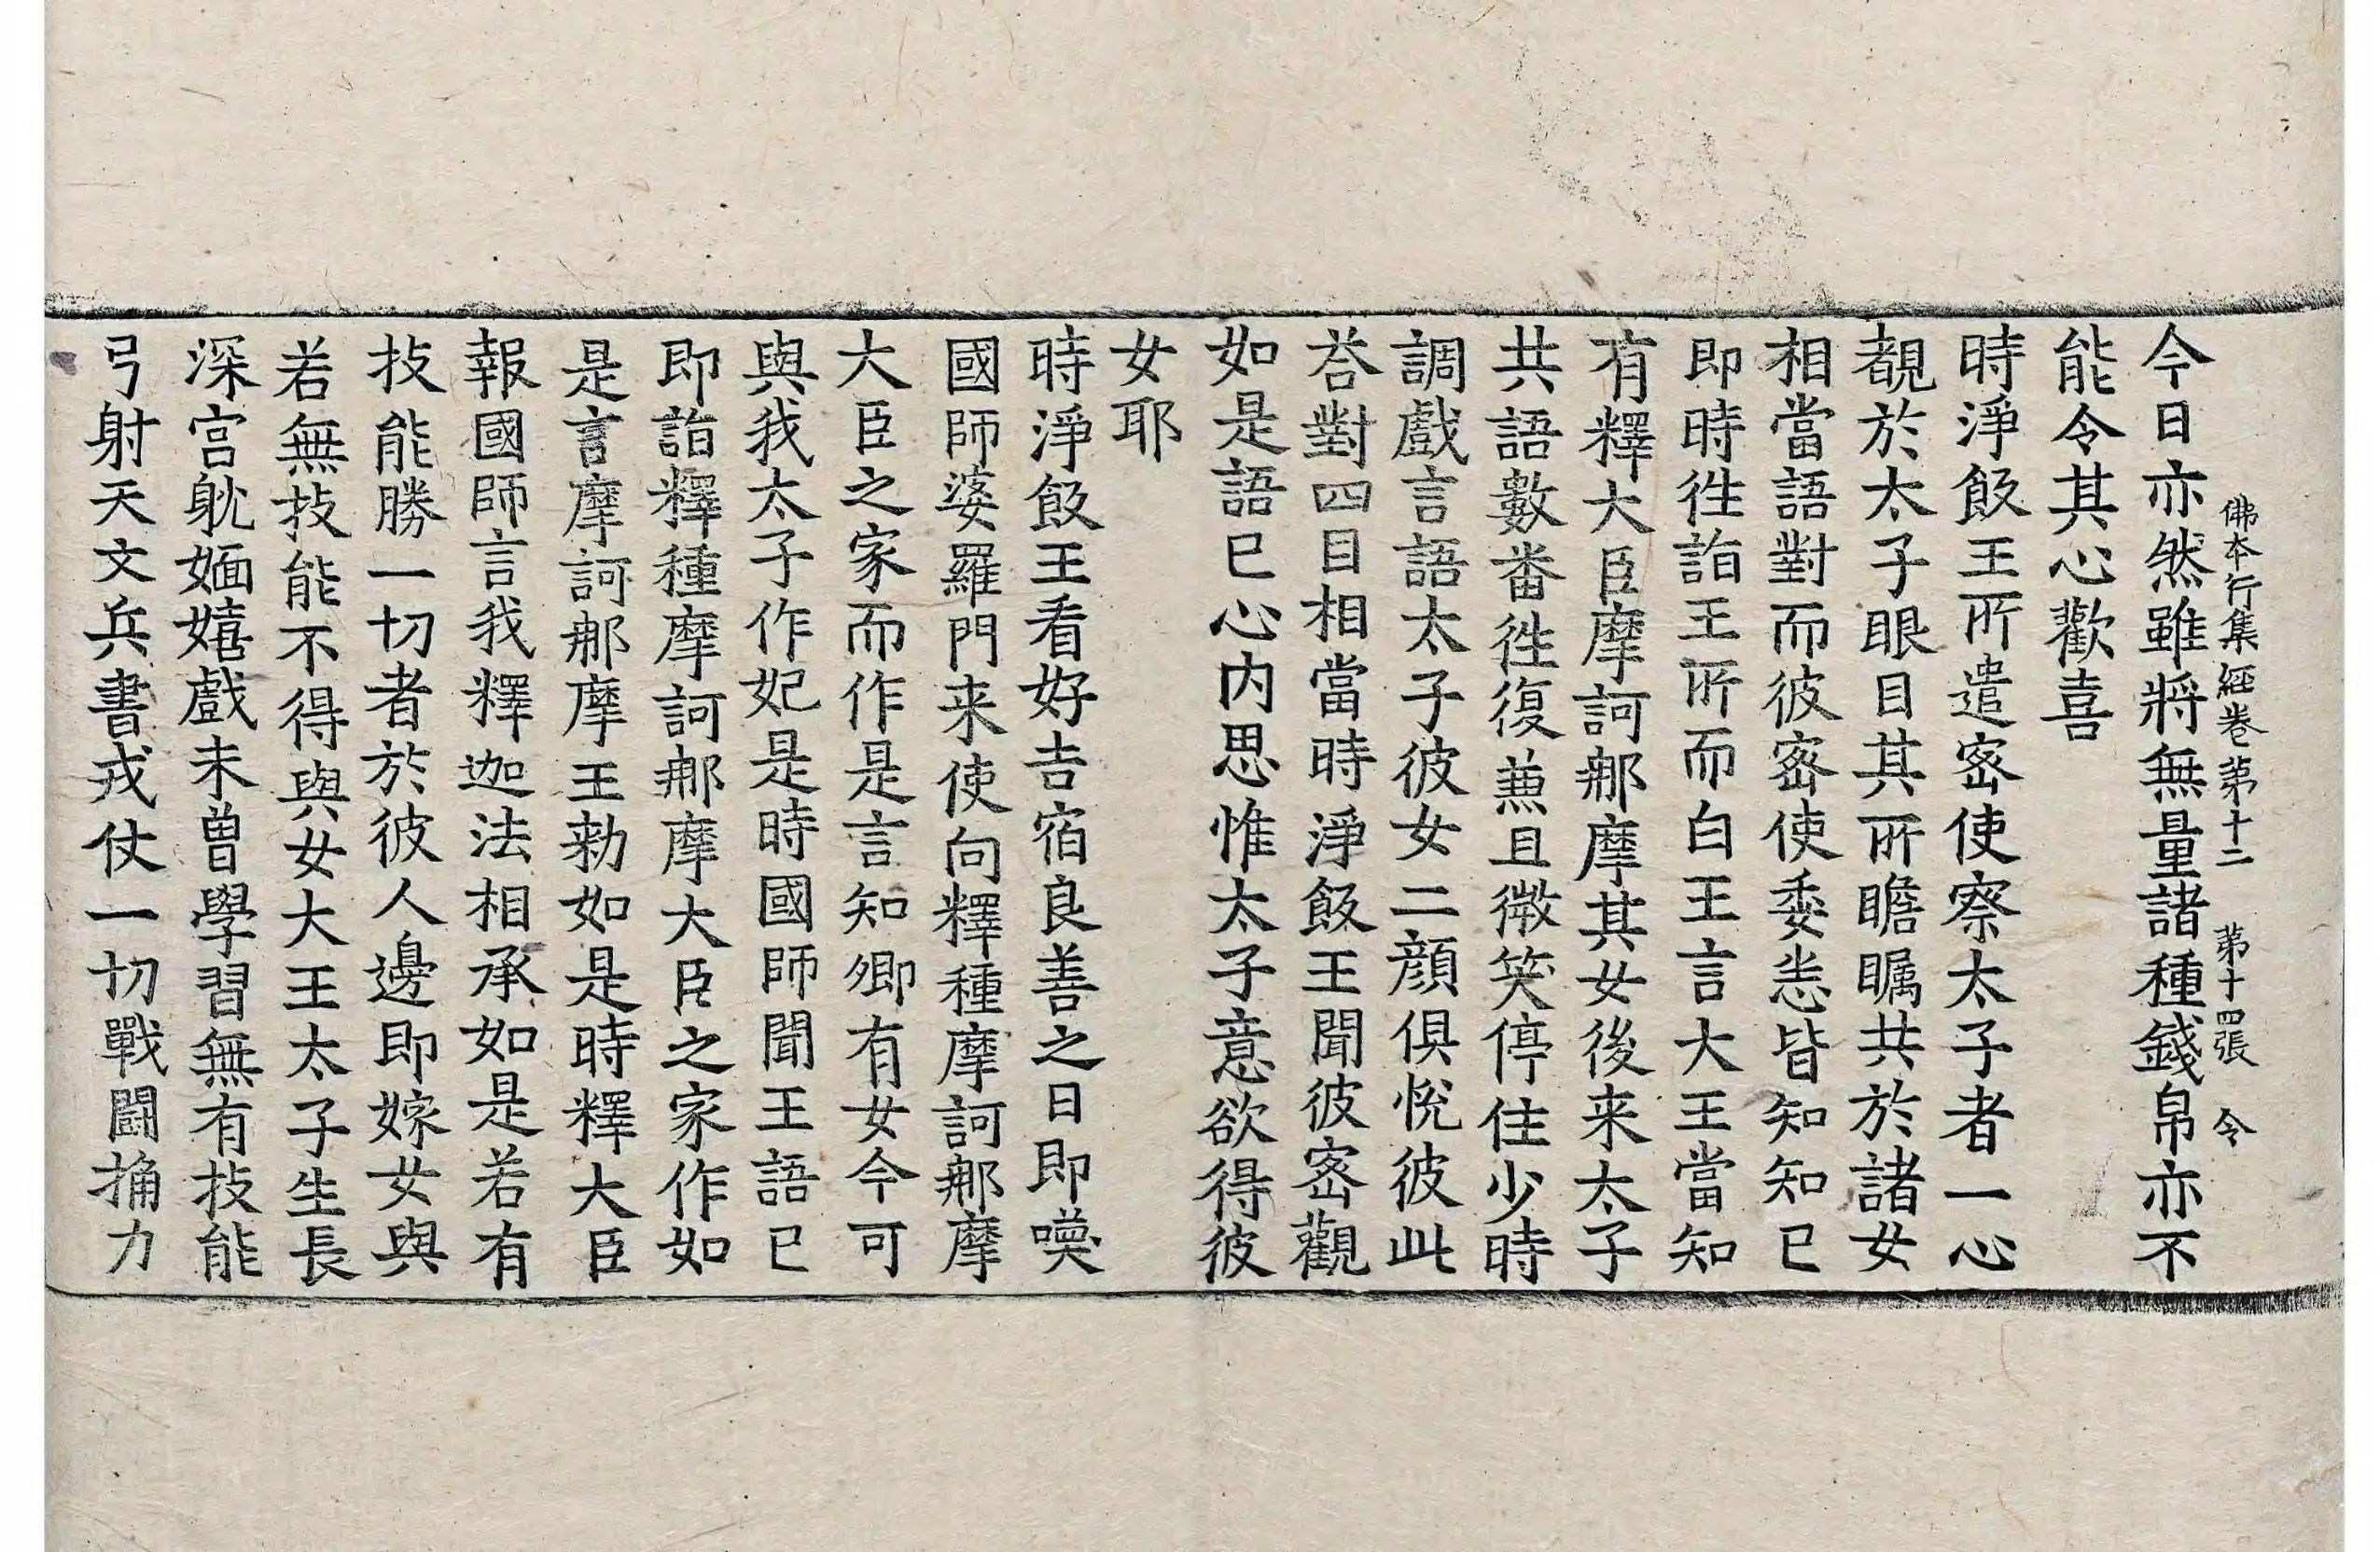 佛本行集經卷第十二 第十四張 令
今日亦然雖將無量諸種錢帛亦不
能令其心歡喜
時淨飯王所遣密使察太子者一心
覩於太子眼目其所瞻矚共於諸女
相當語對而彼密使委悉皆知知已
即時徃詣王所而白王言大王當知
有釋大臣摩訶那摩其女後来太子
共語數番徃復兼且微笑停住少時
調戲言語太子彼女二顔俱悅彼此
荅對四目相當時淨飯王聞彼密觀
如是語已心内思惟太子意欲得彼
女耶
時淨飯王看好吉宿良善之日即喚
國師婆羅門来使向釋種摩訶那摩
大臣之家而作是言知卿有女今可
與我太子作妃是時國師聞王語已
即詣釋種摩訶那摩大臣之家作如
是言摩訶那摩王勑如是時釋大臣
報國師言我釋迦法相承如是若有
技能勝一切者於彼人邊即嫁女與
若無技能不得與女大王太子生長
深宫躭婳嬉戲未曾學習無有技能
弓射天文兵書戎仗一切戰鬪捔力